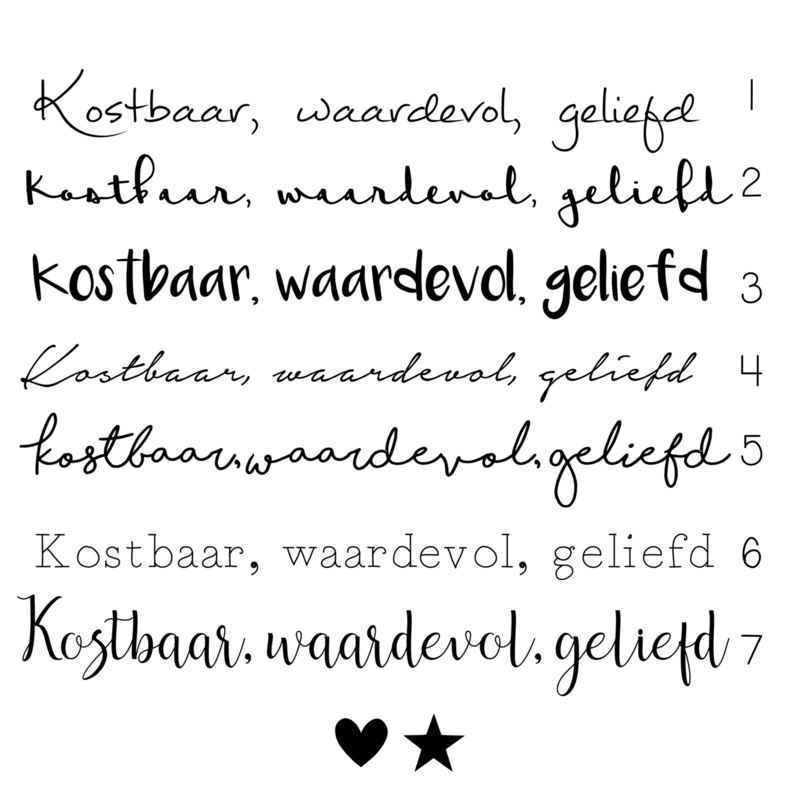 Kostbaar, waardevol, geliefd 1
kostbaar, waardevol, geliefd 2
kostbaar, waardevol, geliefd 3
Kostbaar, waardevol, geliefd 4
kostbaar, waardevol, geliefd 5
Kostbaar, waardevol, geliefd 6
Kostbaar, waardevol, geliefd 7